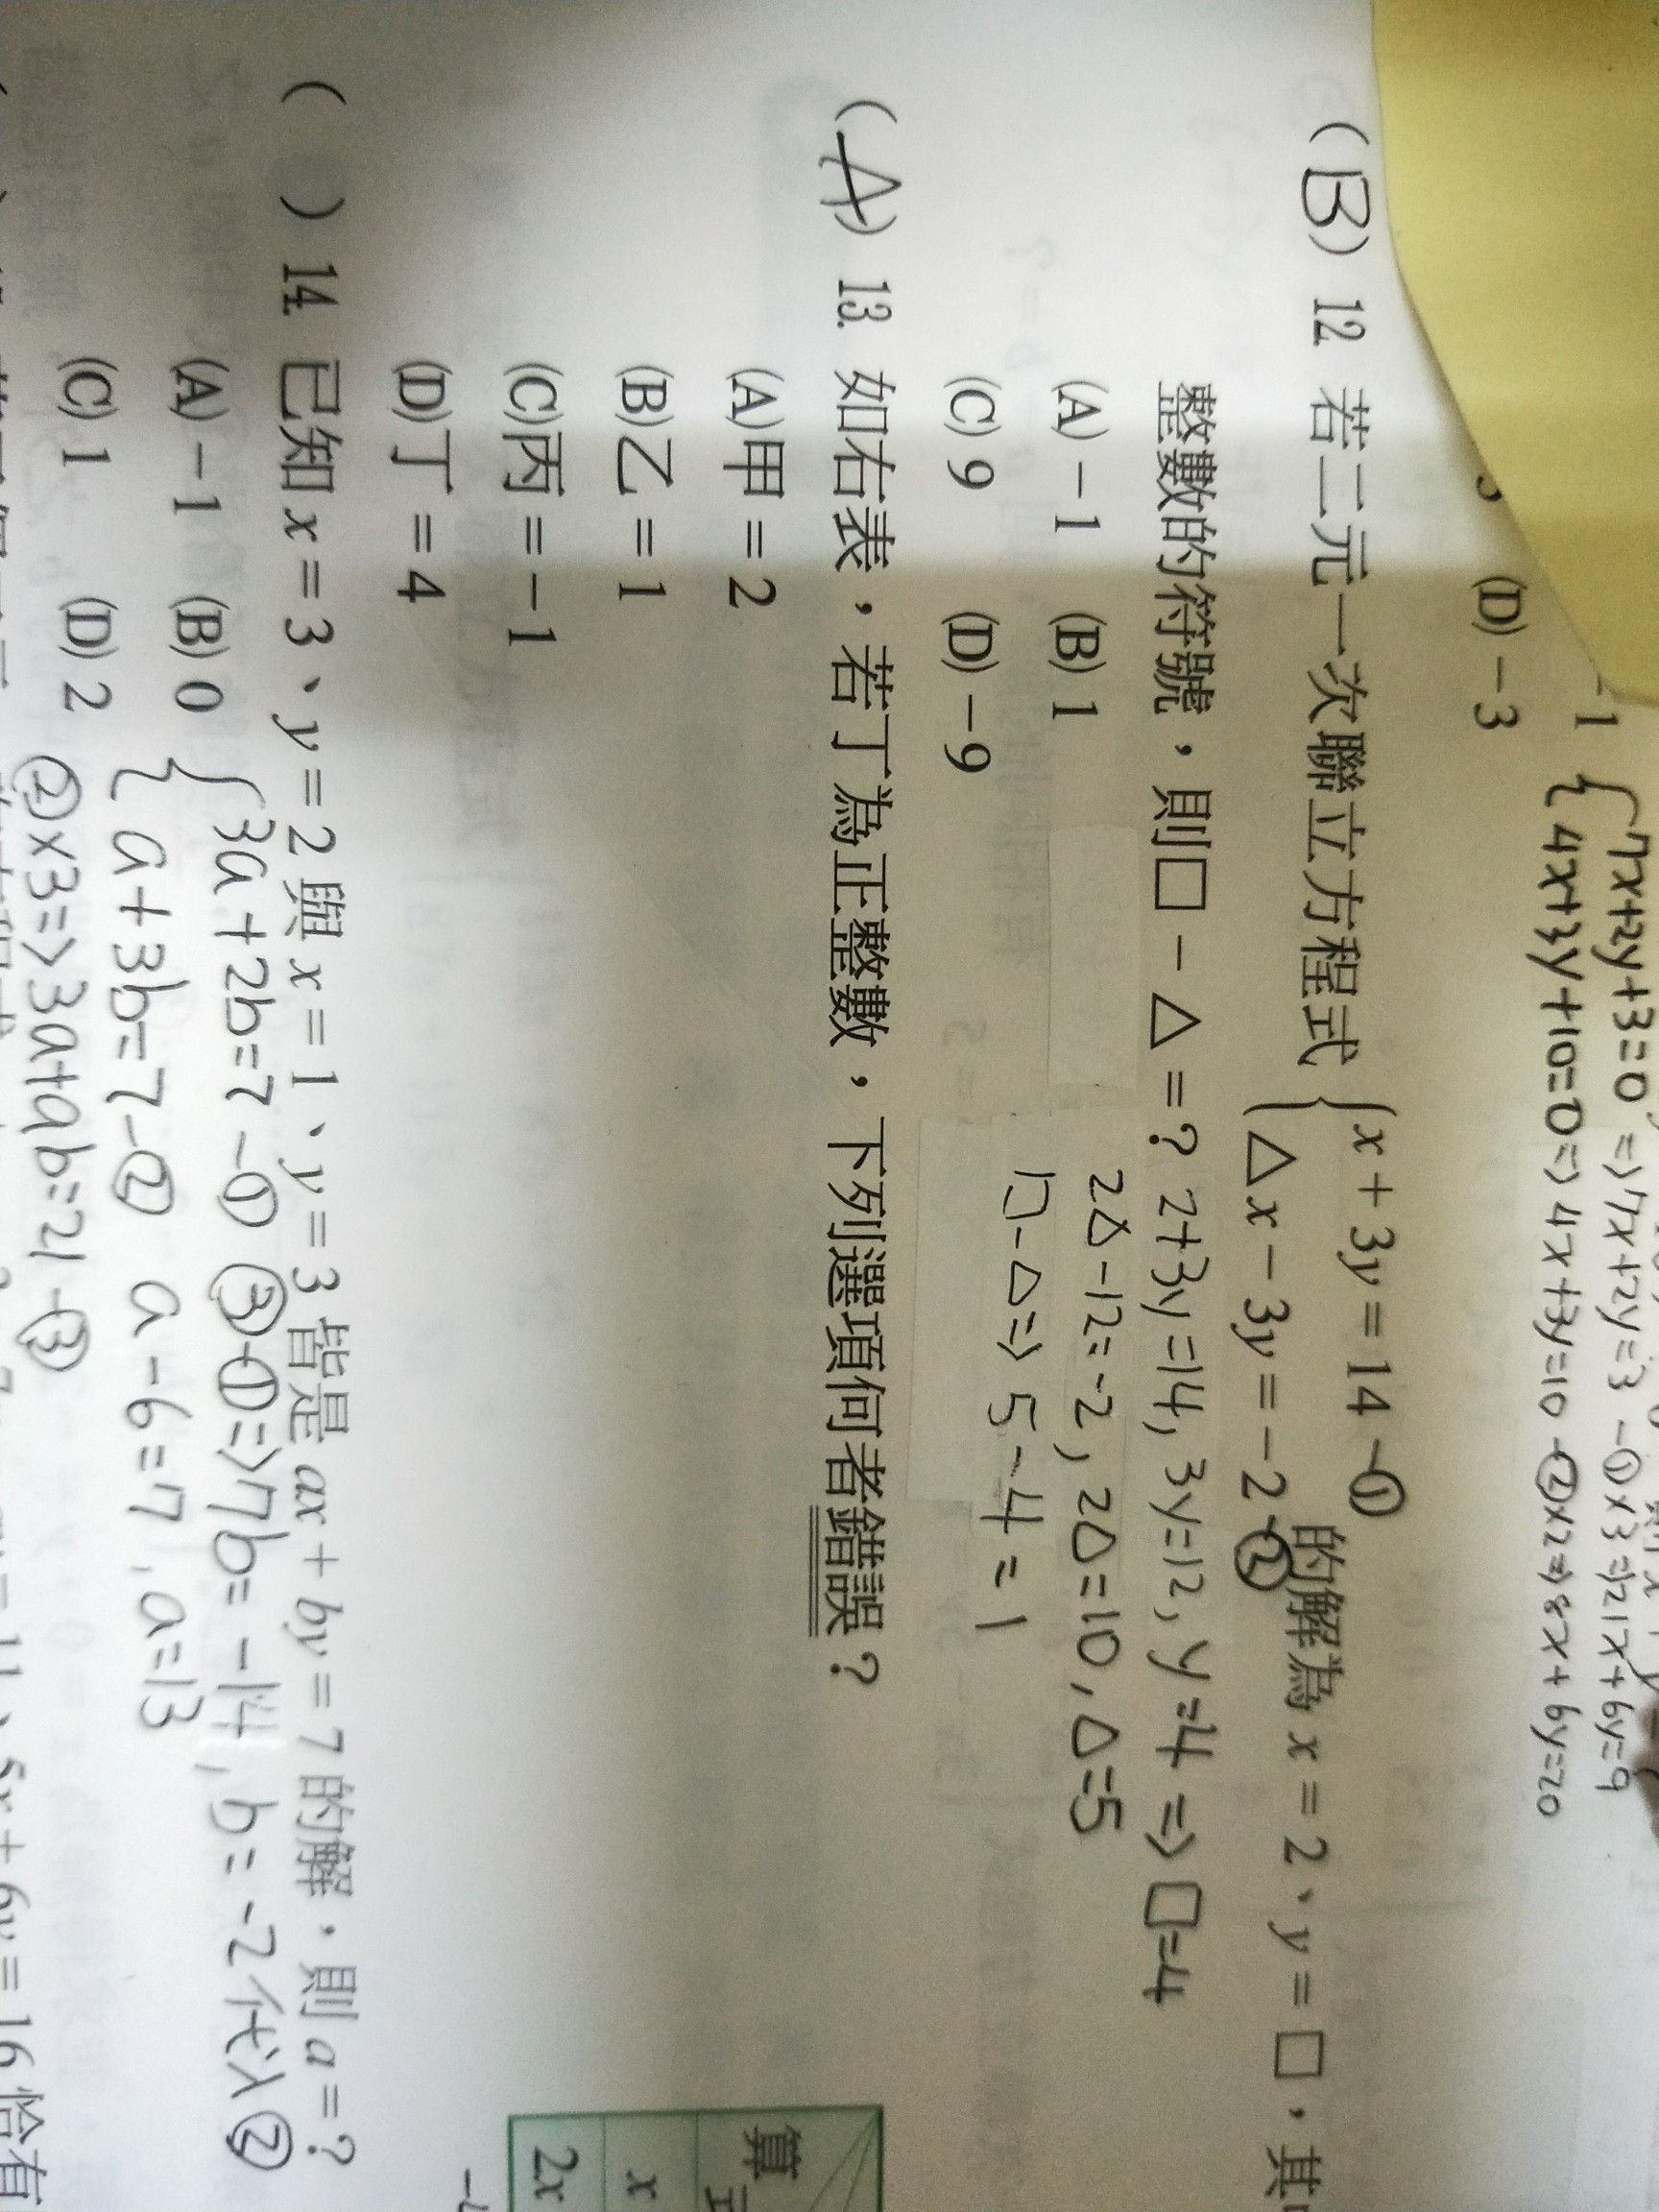 -1
(D) -3
{7x+2y+3=0 => 7x+2y=-3 -①×3 => 21x+6y=9
4x+3y+10=0 => 4x+3y=10 -②×2 => 8x+6y=20
(B) 12. 若二元一次聯立方程式 {x + 3y = 14 -①
△x - 3y = -2 -② 的解為 x = 2、y = □，其
整數的符號，則□ - △ = ? 2+3y=14, 3y=12, y=4 => □=4
(A) -1 (B) 1 2△-12=-2, 2△=10, △=5
(C) 9 (D) -9 □-△=> 5-4=1
(A) 13. 如右表，若丁為正整數，下列選項何者錯誤？
(A) 甲 = 2
(B) 乙 = 1
(C) 丙 = -1
(D) 丁 = 4
算
x
2x
( ) 14. 已知 x = 3、y = 2 與 x = 1、y = 3 皆是 ax + by = 7 的解，則 a = ?
(A) -1 (B) 0 {3a+2b=7 -① ③-①=>7b=-14, b=-2代入②
(C) 1 (D) 2 a+3b=7-② a-6=7, a=13
②×3=>3a+9b=21 -③
5x + 6y = 16 恰有